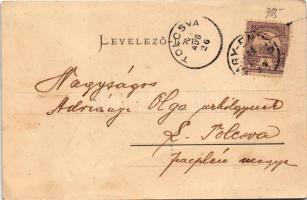 385-
LEVELEZŐ-
TOLCSVA
AUG
26
Nagyságos
Adriányi Olga urhölgynek
E. Tolcsva
Zemplén megye